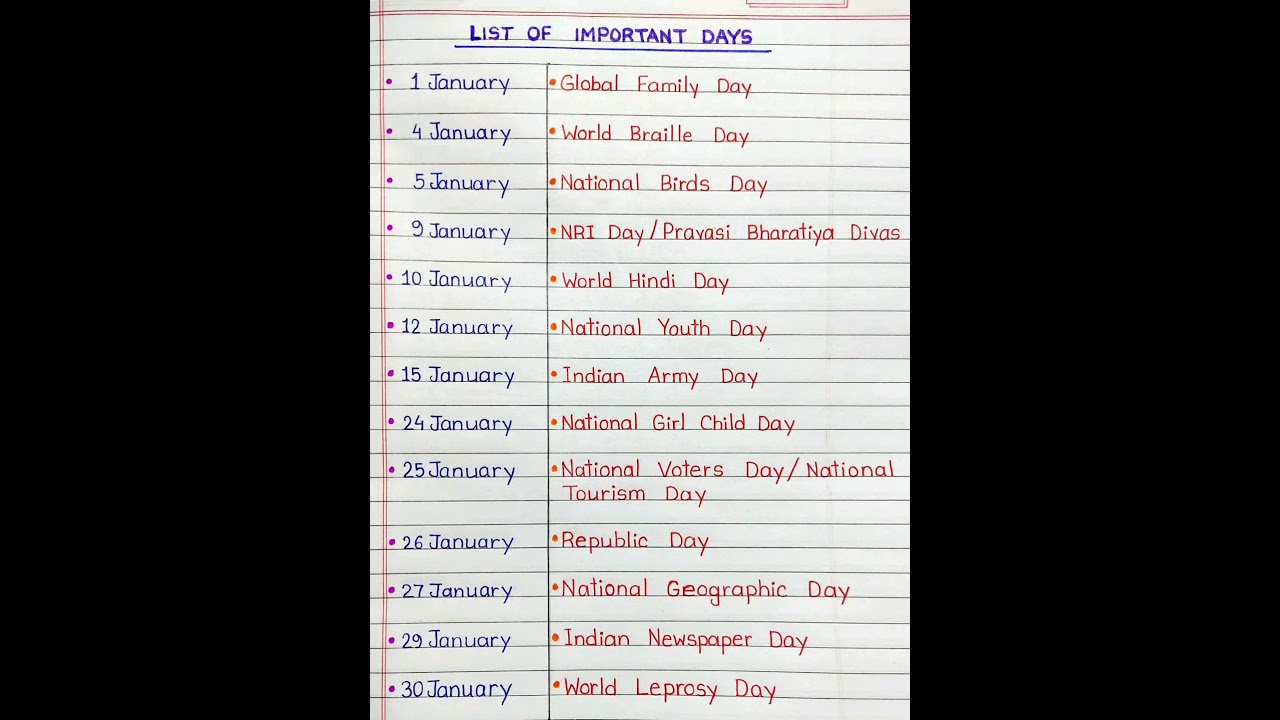 LIST OF IMPORTANT DAYS
• 1 January • Global Family Day
• 4 January • World Braille Day
• 5 January • National Birds Day
• 9 January • NRI Day/Pravasi Bharatiya Divas
• 10 January • World Hindi Day
• 12 January • National Youth Day
• 15 January • Indian Army Day
• 24 January • National Girl Child Day
• 25 January • National Voters Day/National
Tourism Day
• 26 January • Republic Day
• 27 January • National Geographic Day
• 29 January • Indian Newspaper Day
• 30 January • World Leprosy Day